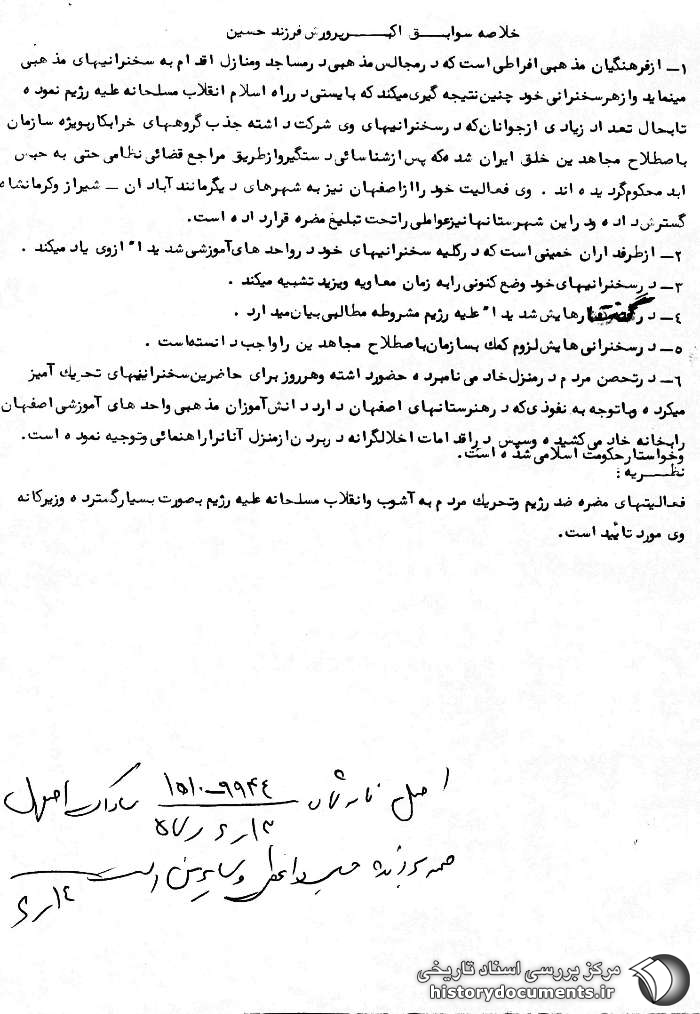 خلاصه سوابق اکبرپرورش فرزند حسین
۱- ازفرهنگیان مذهبی افراطی است که درمجالس مذهبی درمساجد ومنازل اقدام به سخنرانیهای مذهبی
مینماید وازهرسخنرانی خود چنین نتیجه گیری میکند که بایستی درراه اسلام انقلاب مسلحانه علیه رژیم نموده
تابحال تعداد زیادی ازجوانان که درسخنرانیهای وی شرکت داشته جذب گروههای خرابکاربویژه سازمان
باصطلاح مجاهدین خلق ایران شده که پس ازشناسائی دستگیروازطریق مراجع قضائی نظامی حتی به حبس
ابد محکوم گردیده اند . وی فعالیت خود راازاصفهان نیز به شهرهای دیگرمانند آبادان - شیراز وکرمانشاه
گسترش داده ودراین شهرستانهانیزعواملی راتحت تبلیغ مضره قرارداده است.
۲- ازطرفداران خمینی است که درکلیه سخنرانیهای خود درواحدهای آموزشی شدیداً ازوی یاد میکند .
۳- درسخنرانیهای خود وضع کنونی رابه زمان معاویه ویزید تشبیه میکند .
۴- درگفتارهایش شدیداً علیه رژیم مشروطه مطالبی بیان میدارد .
۵- درسخنرانی هایش لزوم کمک بسازمان باصطلاح مجاهدین راواجب دانسته است .
۶- درتحصن مردم درمنزل خادمی نامبرده حضورداشته وهرروز برای حاضرین سخنرانیهای تحریک آمیز
میکرده وباتوجه به نفوذی که درهنرستانهای اصفهان دارد دانش آموزان مذهبی واحدهای آموزشی اصفهان
رابخانه خادمی کشیده وسپس دراقدامات اخلالگرانه دربردن ازمنزل آنانراراهنمائی وتوجیه نموده است.
وخواستارحکومت اسلامی شده است.
نظریه :
فعالیتهای مضره ضد رژیم وتحریک مردم به آشوب وانقلاب مسلحانه علیه رژیم بصورت بسیارگسترده وزیرکانه
وی مورد تائید است.
اصل نامه شماره ۹۹۴۴-۱۵۱۰ ساواک اصفهان
است
مرکز بررسی اسناد تاریخی
historydocuments.ir